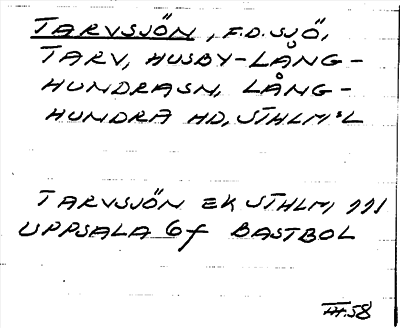 TARVSJÖN, F.D. SJÖ,
TARV, HUSBY-LÅNG-
HUNDRASN, LÅNG-
HUNDRA HD, STHLM:L
TARVSJÖN EK STHLM 111
UPPSALA 6f BASTBOL
III.58